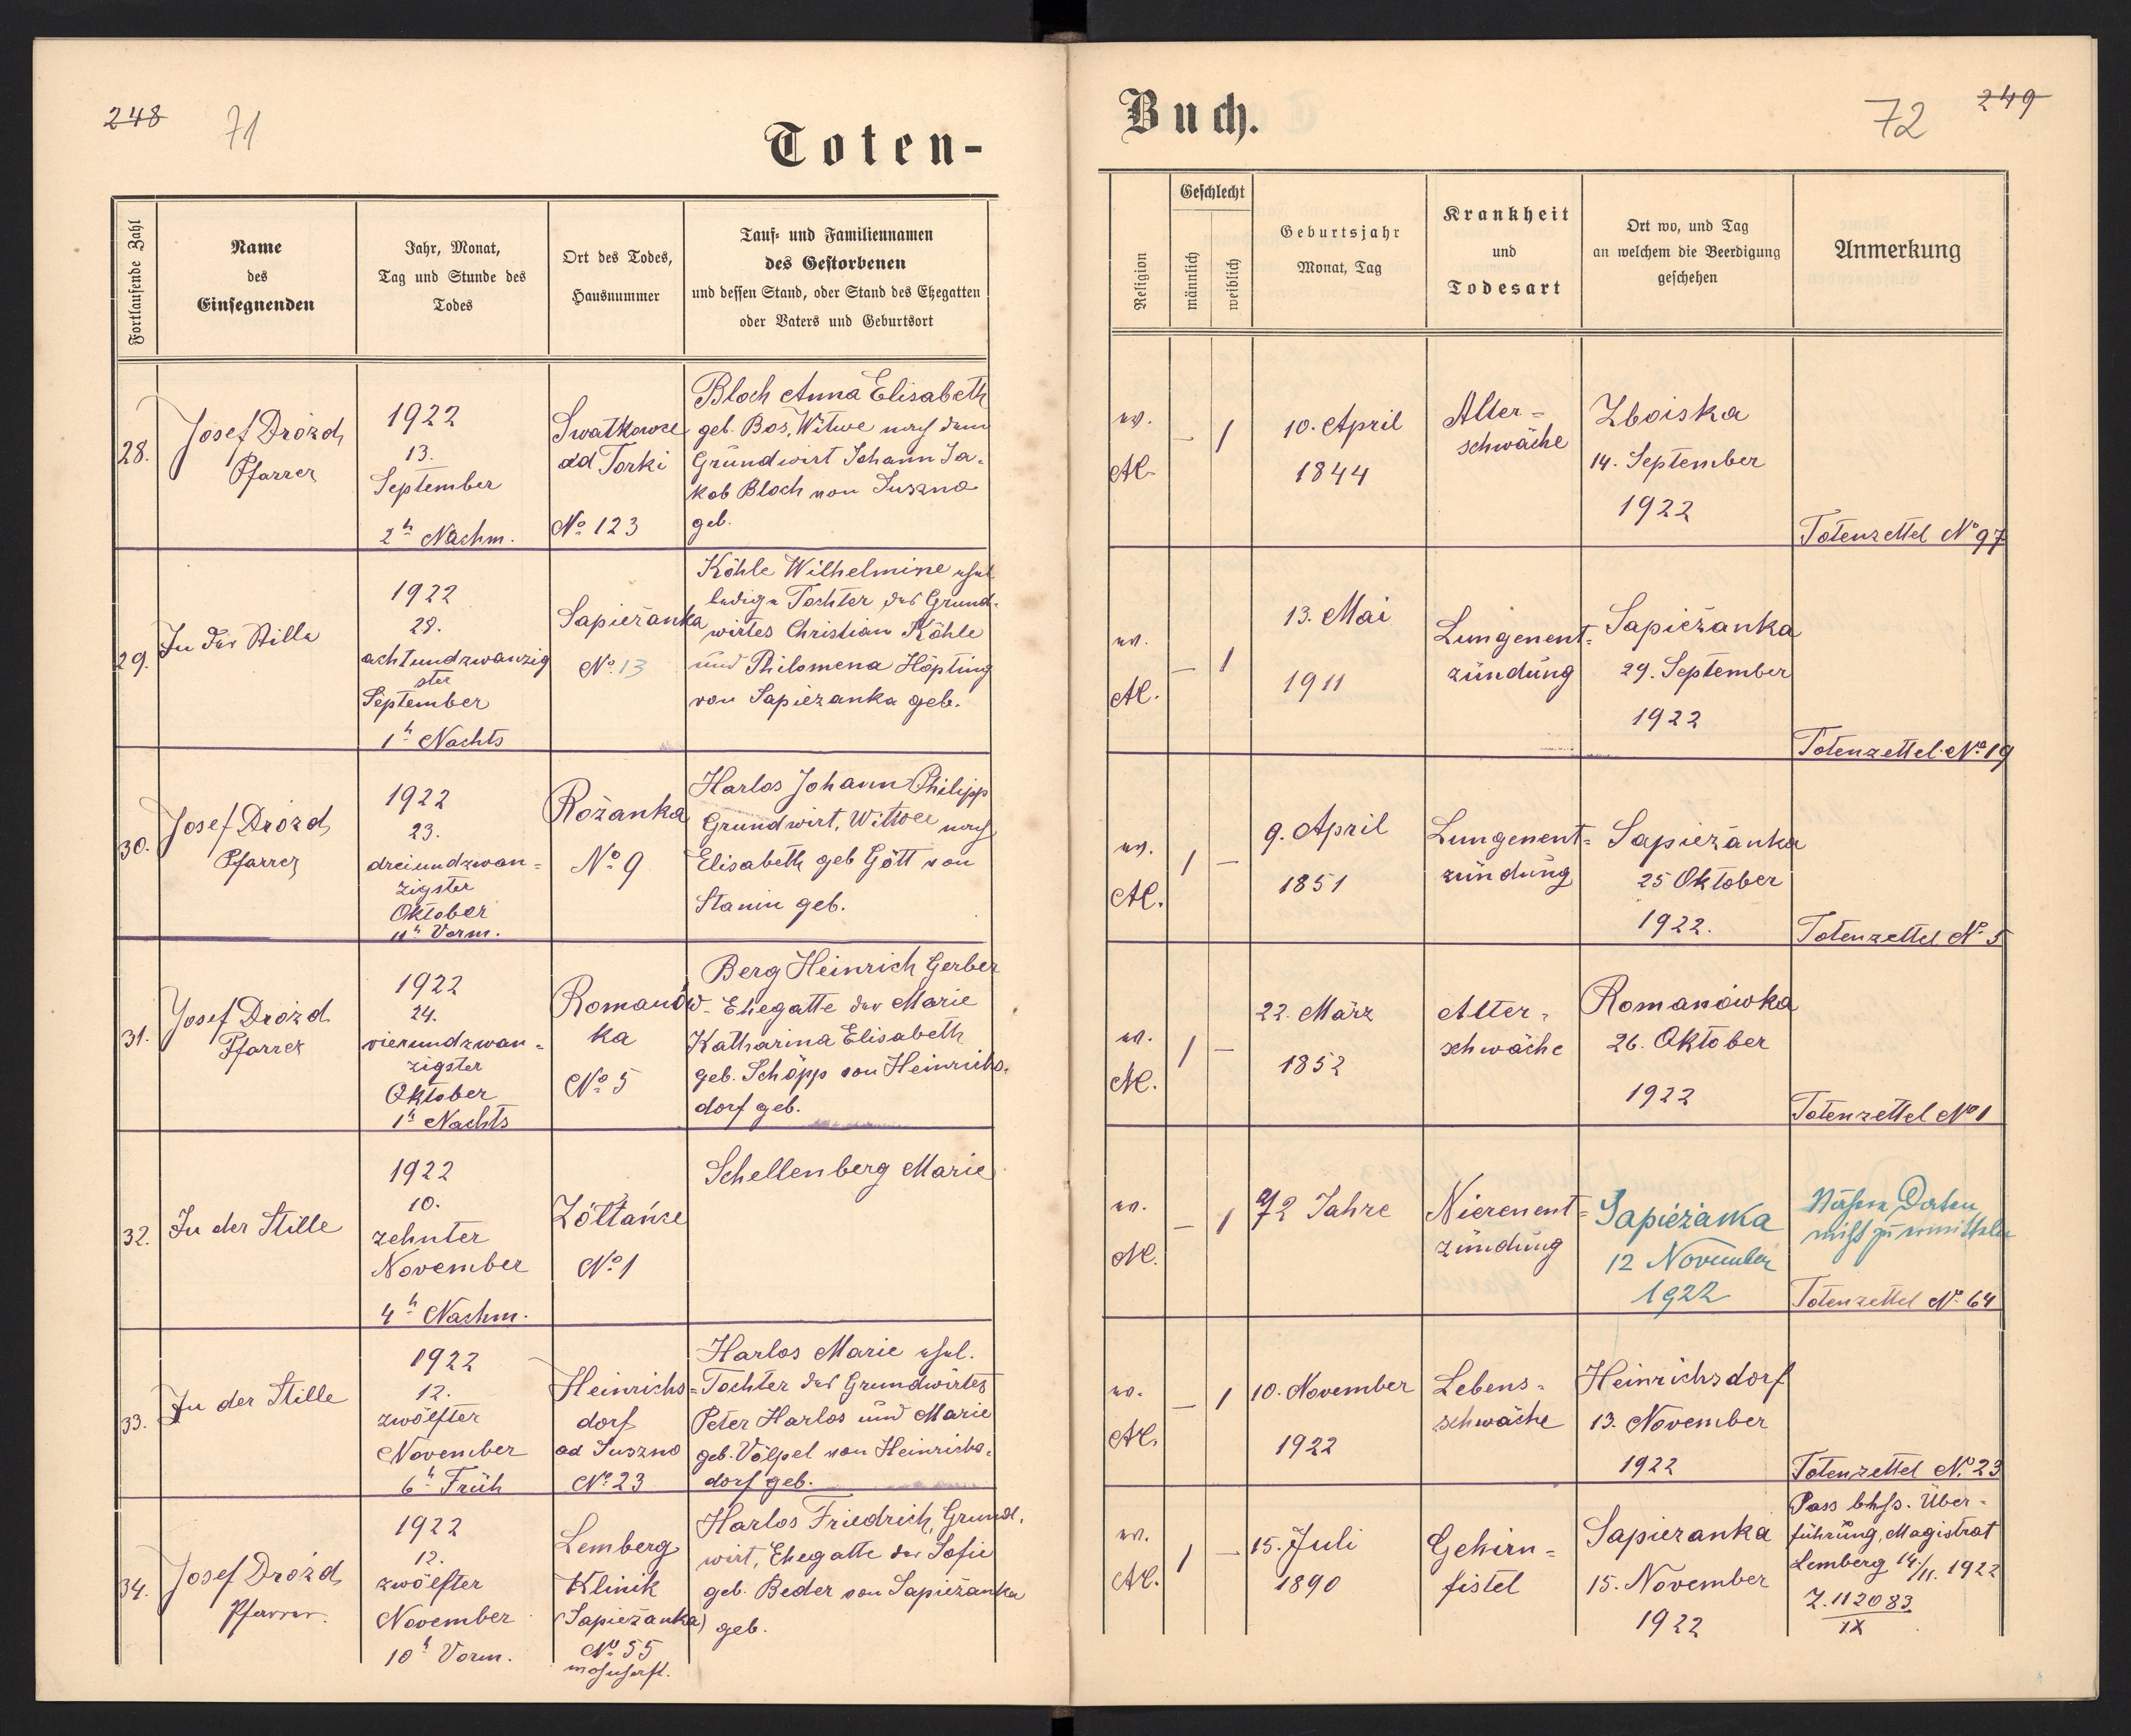 248
71
Toten-
Fortlaufende Zahl
Name
des
Einsegnenden
Jahr, Monat,
Tag und Stunde des
Todes
Ort des Todes,
Hausnummer
Tauf- und Familiennamen
des Gestorbenen
und dessen Stand, oder Stand des Ehegatten
oder Vaters und Geburtsort
28.
Josef Drozd
Pfarrer
1922
13.
September
2h Nachm.
Swatkowce
ad Torki
No 123
Bloch Anna Elisabeth
geb. Bos, Witwe nach dem
Grundwirt Johann Ja-
kob Bloch von Suszno
geb.
29.
In der Stille
1922
28.
achtundzwanzig
ster
September
1h Nachts
Sapieżanka
No 13
Köhle Wilhelmine ehel.
ledige Tochter des Grund-
wirtes Christian Köhle
und Philomena Höpting
von Sapieżanka geb.
30.
Josef Drozd
Pfarrer
1922
23.
dreiundzwan-
zigster
Oktober
11h Vorm.
Rożanka
No 9
Harlos Johann Philipp
Grundwirt, Witwer nach
Elisabeth geb Gött von
Stanin geb.
31.
Josef Drozd
Pfarrer
1922
24.
vierundzwan-
zigster
Oktober
1h Nachts
Romanów-
ka
No 5
Berg Heinrich Gerber
Ehegatte der Marie
Katharina Elisabeth
geb. Schöpp von Heinrichs-
dorf geb.
32.
In der Stille
1922
10.
zehnter
November
4h Nachm.
Żółtańce
No 1
Schellenberg Marie
33.
In der Stille
1922
12.
zwölfter
November
6h Früh
Heinrichs-
dorf
ad Suszno
No 23
Harlos Marie ehel.
Tochter des Grundwirtes
Peter Harlos und Marie
geb. Völpel von Heinrichs-
dorf geb.
34.
Josef Drozd
Pfarrer.
1922
12.
zwölfter
November
10h Vorm.
Lemberg
Klinik
(Sapieżanka)
No 55
wohnhaft.
Harlos Friedrich, Grund-
wirt, Ehegatte der Sofie
geb. Beder von Sapieżanka
geb.
Buch.
72
249
Religion
Geschlecht
männlich
weiblich
Geburtsjahr
Monat, Tag
Krankheit
und
Todesart
Ort wo, und Tag
an welchem die Beerdigung
geschehen
Anmerkung
ev.
AC.
— 1
10. April
1844
Alter-
schwäche
Zboiska
14. September
1922
Totenzettel No 97
ev.
AC.
— 1
13. Mai
1911
Lungenent-
zündung
Sapieżanka
29. September
1922
Totenzettel No 19
ev.
AC.
1 —
9. April
1851
Lungenent-
zündung
Sapieżanka
25 Oktober
1922.
Totenzettel No 5
ev.
AC.
1 —
22. März
1852
Alter-
schwäche
Romanówka
26. Oktober
1922
Totenzettel No 1
ev.
AC.
— 1
72 Jahre
Nierenent-
zündung
Sapieżanka
12 November
1922
Nähere Daten
nicht zu ermitteln
Totenzettel No 64
ev.
AC.
— 1
10. November
1922
Lebens-
schwäche
Heinrichsdorf
13. November
1922
Totenzettel No 23
ev.
AC.
1 —
15. Juli
1890
Gehirn-
fistel
Sapieżanka
15. November
1922
Pass bhfs. Über-
führung, Magistrat
Lemberg 14./11. 1922
Z. 112083
IX